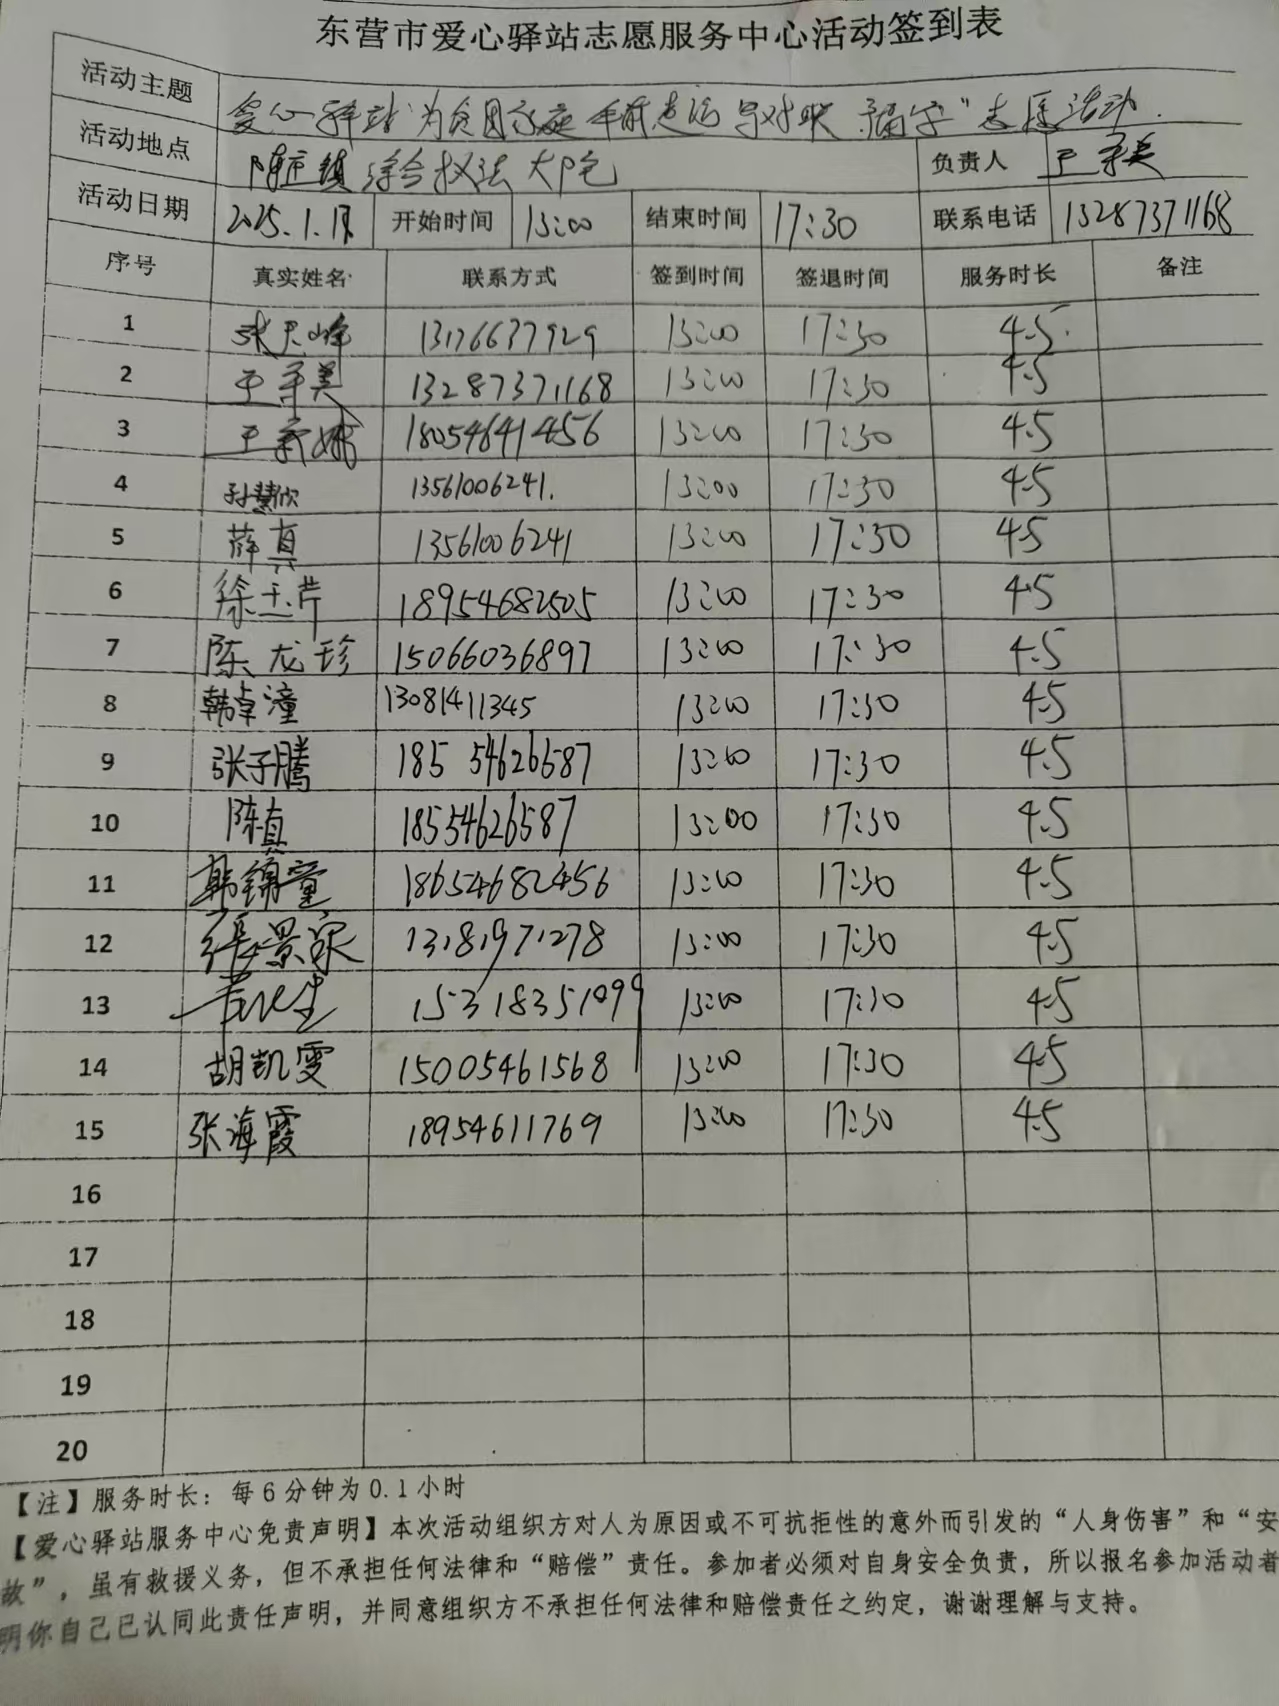 东营市爱心驿站志愿服务中心活动签到表
活动主题 爱心驿站"为贫困家庭年前走访 写对联 福字"志愿活动.
活动地点 陈庄镇综合执法大院 负责人
活动日期 2025.1.18 开始时间 13:00 结束时间 17:30 联系电话 13287371168
序号 真实姓名 联系方式 签到时间 签退时间 服务时长 备注
1 13176637929 13:00 17:30 4.5
2 13287371168 13:00 17:30 4.5
3 18054641456 13:00 17:30 4.5
4 孙慧欣 13561006241. 13:00 17:30 4.5
5 薛真 13561006241 13:00 17:30 4.5
6 徐玉芹 18954682505 13:00 17:30 4.5
7 陈龙珍 15066036897 13:00 17:30 4.5
8 韩卓潼 13081411345 13:00 17:30 4.5
9 张子腾 185 54626587 13:00 17:30 4.5
10 陈真 18554626587 13:00 17:30 4.5
11 韩锦童 18654682456 13:00 17:30 4.5
12 張景泉 13181971278 13:00 17:30 4.5
13 15318351099 13:00 17:30 4.5
14 胡凯雯 15005461568 13:00 17:30 4.5
15 张海霞 18954611769 13:00 17:30 4.5
16
17
18
19
20
【注】服务时长：每6分钟为0.1小时
【爱心驿站服务中心免责声明】本次活动组织方对人为原因或不可抗拒性的意外而引发的“人身伤害”和“安
故”，虽有救援义务，但不承担任何法律和“赔偿”责任。参加者必须对自身安全负责，所以报名参加活动者
明你自己已认同此责任声明，并同意组织方不承担任何法律和赔偿责任之约定，谢谢理解与支持。